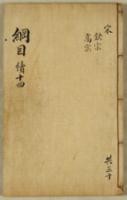 宋
欽宗
高宗
綱目 續十四
共三十